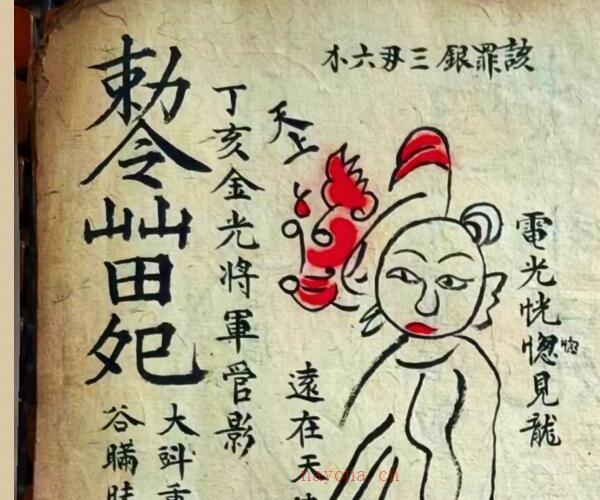 該罪銀三刄六
電光恍惚見龍
惚
天上
遠在天
丁亥金光將軍管影
勅令
田
大
谷瞞
nayona.cn